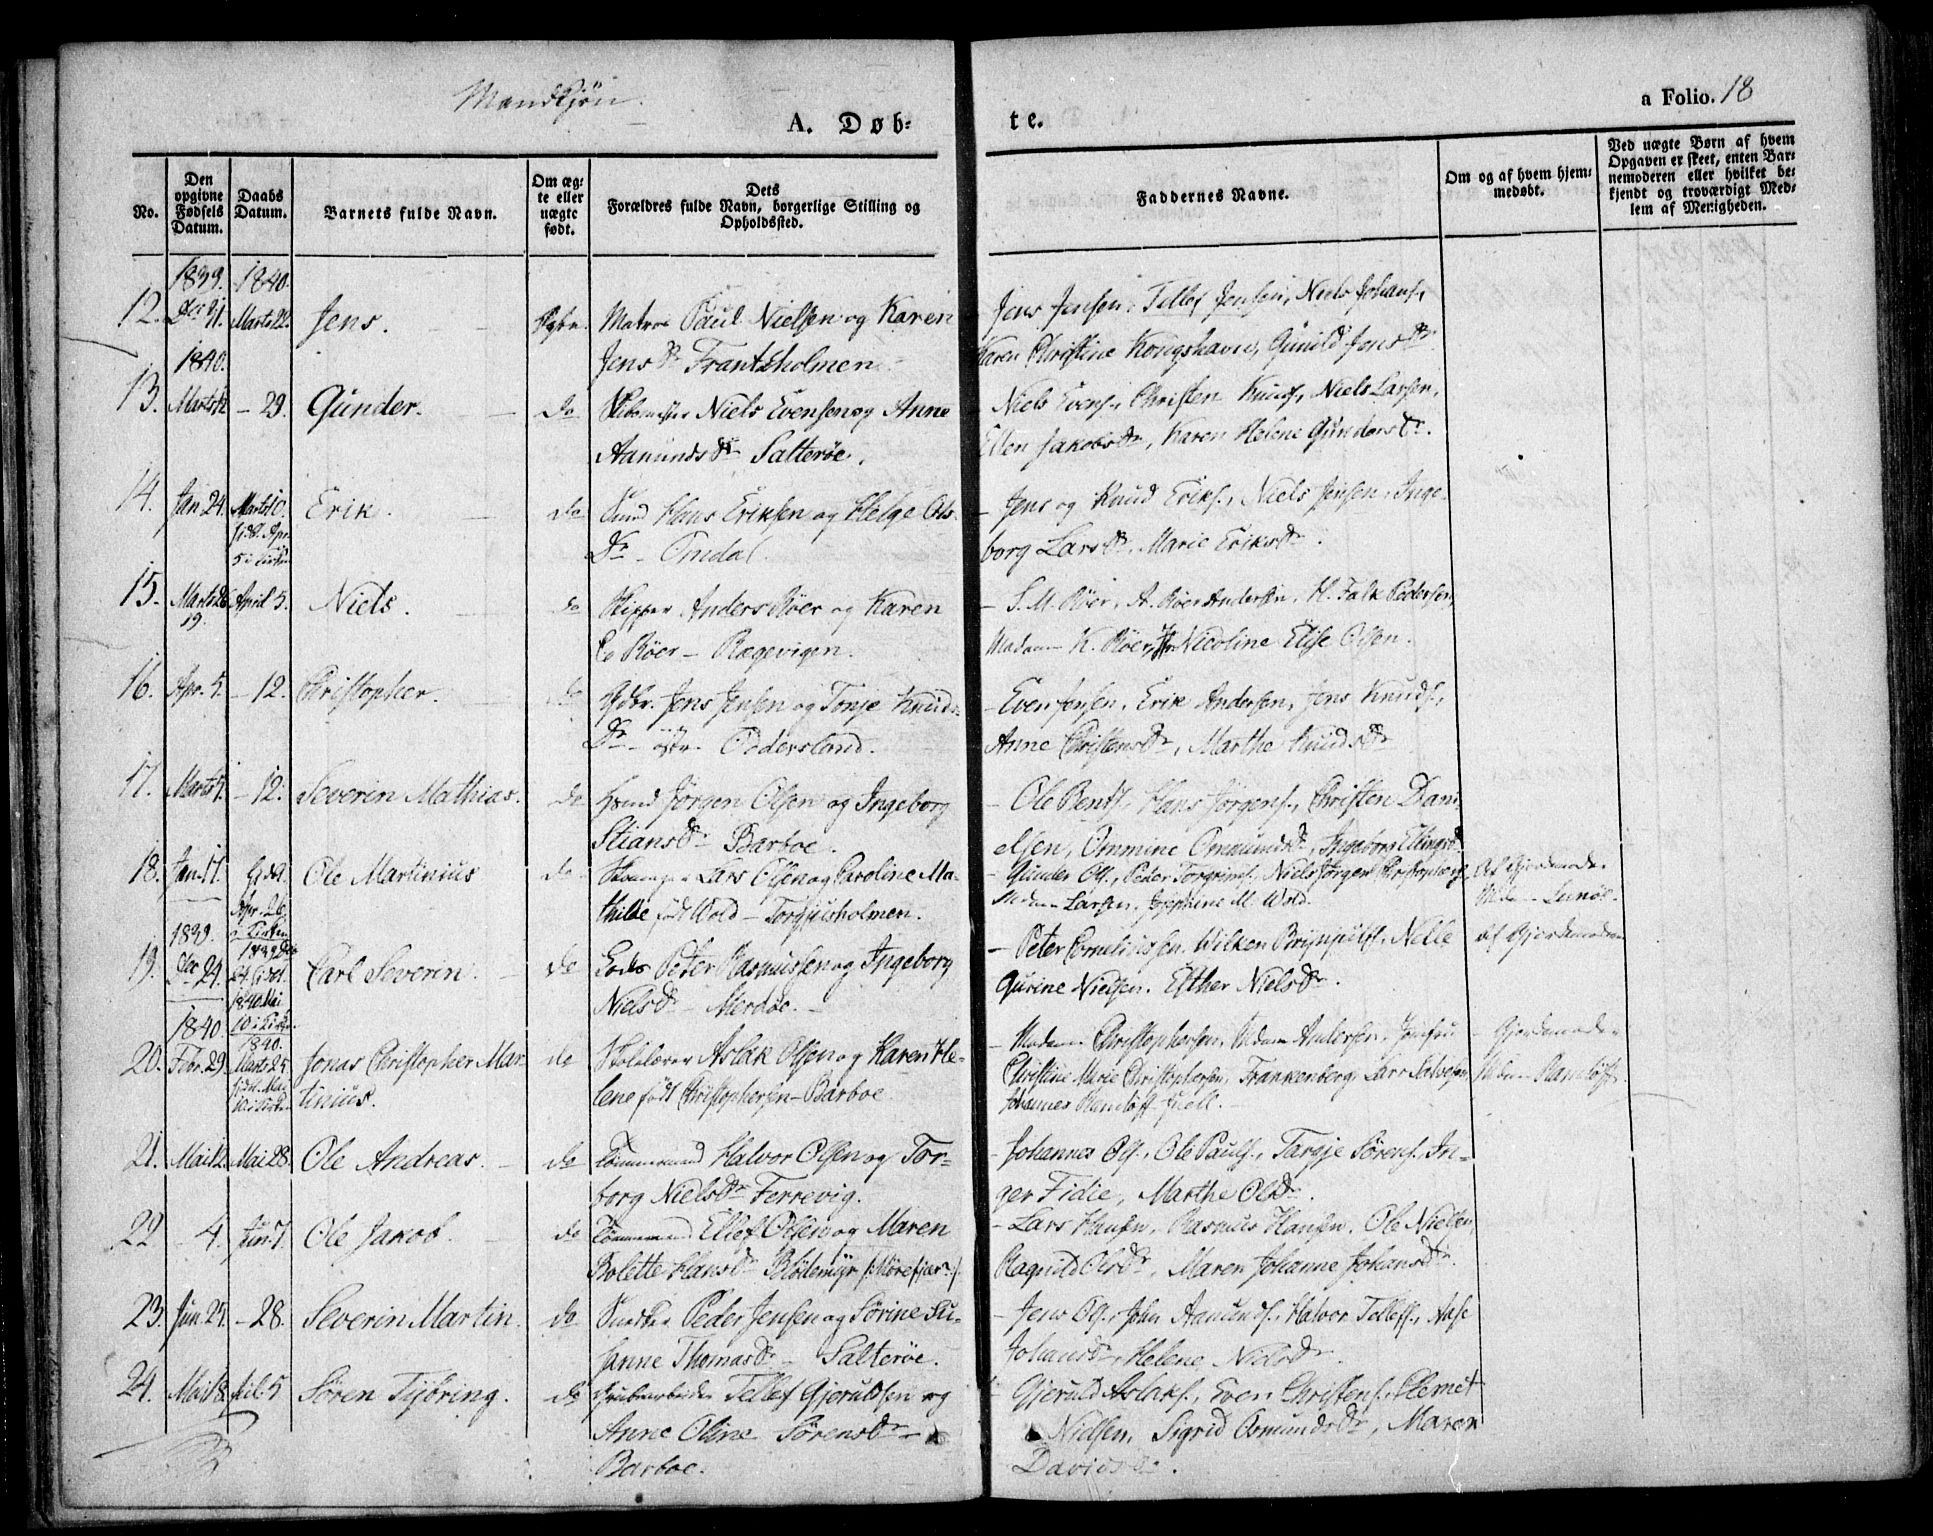 Mandkjøn.
A. Døb-
te.
a Folio. 18
No.
Den opgivne Fødsels Datum.
Daabs Datum.
Barnets fulde Navn.
Om ægte eller uægte født.
Dets Forældres fulde Navn, borgerlige Stilling og Opholdssted.
Faddernes Navne.
Om og af hvem hjemmedøbt.
Ved uægte Børn af hvem Opgaven er skeet, enten Barnemoderen eller hvilket bekjendt og troværdigt Medlem af Menigheden.
1839. 1840.
12. Dec 31. Marts 22. Jens. Ægte. Matros Paul Nielsen og Karen
Jens Dr Frantsholmen.
Jens Jensen, Tellef Jensen, Niels Johans.,
Karen Christine Kongshavn, Gunild Jens Dr
1840.
13. Marts 12 - 29. Gunder. do Niels Evensen og Anne
Aanunds Dr Salterøe.
Niels Evens., Christen Knuds., Niels Larsen,
Ellen Jakobs Dr, Karen Helene Gunders Dr.
14. Jan 24. Marts 10. Erik. do Hans Eriksen og Helge Ols
Dr - Omdal.
Apr.
- Jens og Knud Eriks., Niels Jensen, Inge-
borg Lars Dr, Marie Eriks Dr.
15. Marts 26 April 5. Niels. do Skipper Anders Röer og Karen
19.
Röer - Rægevigen.
- S. M. Röer, A. Röer Andersen, H. Falk Pedersen,
Madam K. Röer, Nicoline Elise Olsen.
16. Apr. 5. - 12. Christopher. do Gdbr. Jens Jensen og Tonje Knuds
Dr Pedersland.
- Even Jensen, Erik Andersen, Jens Knuds.,
Anne Christens Dr, Marthe Knuds Dr
17. Marts - 12. Severin Mathias. do Jörgen Olsen og Ingeborg
Stians Dr Barboe.
- Ole Bents., Hans Jörgens., Christen Dani-
elsen, Ommine Ommunds Dr, Ingeborg Ellings Dr
18. Jan. 17. Ole Martinius do Lars Olsen og Caroline Ma-
thilde født Wold - Torgjusholmen.
Apr. 26.
i Kirken
- Gunder Ols., Peder Torgrims., Niels Jörgen Christophers.,
Madam Larsen, Josephine M. Wold.
Af Gjordemoder
1839.
19. Dec 24. Carl Severin. do Lods Peter Rasmussen og Ingeborg
Niels Dr - Merdøe.
1840 Mai
10 i Kirken
- Peter Corneliussen, Wilken Brynulfs., Nelle
Gurine Nielsen, Esther Niels Dr.
Af Gjordemoderen
1840. 1840.
20. Febr. 29. Marts 25 Jonas Christopher Mar- do Skolelærer Aslak Olsen og Karen He-
tinius. lene født Christophersen - Barboe
- Madam Christophersen, Madam Andersen, Jomfru
Christine Marie Christophersen, Frankenberg, Lars Salvesen,
Johannes Juell.
- Gjordemoder
21. Mai 12. Mai 28. Ole Andreas. do Tømmermand Halvor Olsen og Tor-
borg Niels Dr Ferrevig.
- Johannes Ols., Ole Pauls., Tarje Sörens., In-
ger Fidie, Marthe Ols Dr.
22 - 4. Jun. 7. Ole Jakob. do Tømmermand Ellef Olsen og Maren
Bolette Hans Dr Blödemyr
- Lars Hansen, Rasmus Hansen, Ole Nielsen,
Ragnild Ols Dr, Maren Johanne Johans Dr.
23. Jun 25. - 28. Severin Martin. do Peder Jensen og Sörine Su-
sanne Thomas Dr - Salterøe.
- Jens Ols., John Aanunds., Halvor Tellefs., Aase
Johans Dr, Helene Niels Dr.
24. Mai 18. Juli 5 Søren Tjöring. do Tellef Gjeruldsen og
Anne Oline Sörens Dr -
Barboe.
- Gjeruld Aslaks., Even Christens., Clemet
Nielsen, Sigrid Osmunds Dr, Maren
Davids Dr.